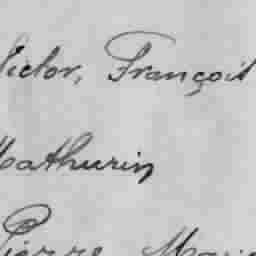 Victor, François
Mathurin
Pierre Marie